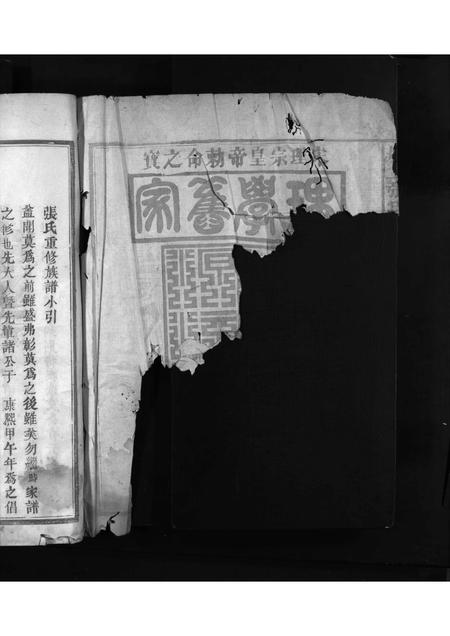 宋理宗皇帝勅命之寶
理學舊家
張氏重修族譜小引
蓋聞莫爲之前雖盛弗彰莫爲之後雖美勿繼時家譜
之修也先大人曁先輩諸公于 康熙甲午年爲之倡